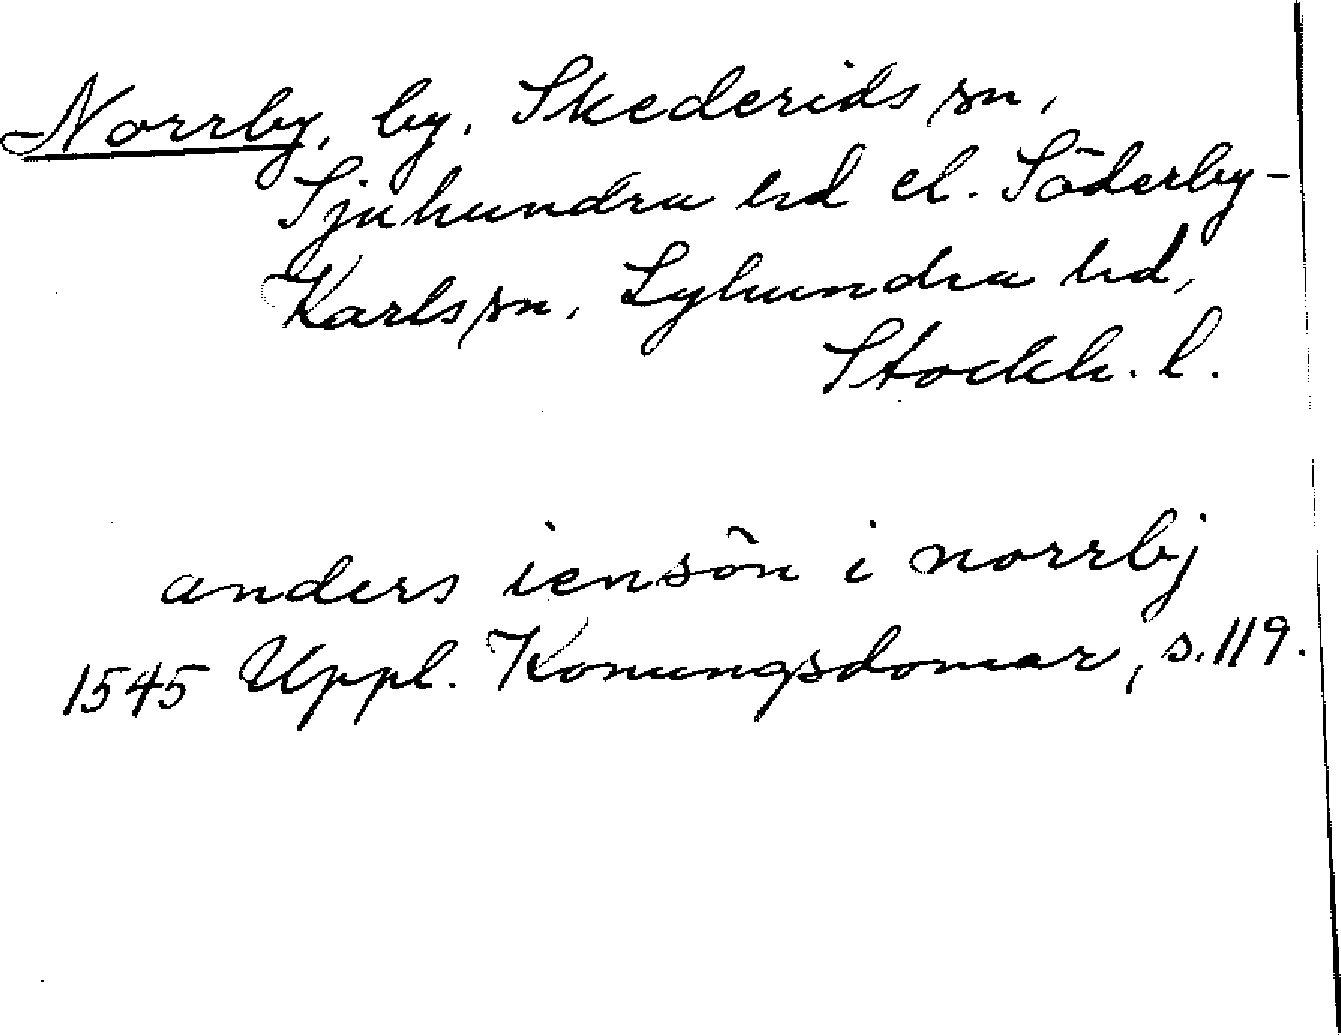 Norrby, by, Skederids sn,
Sjuhundra hd el. Söderby-
Karls sn, Lyhundra hd,
Stockh. l.
anders iensön i norrbj
1545 Uppl. Konungsdomar, s. 119.